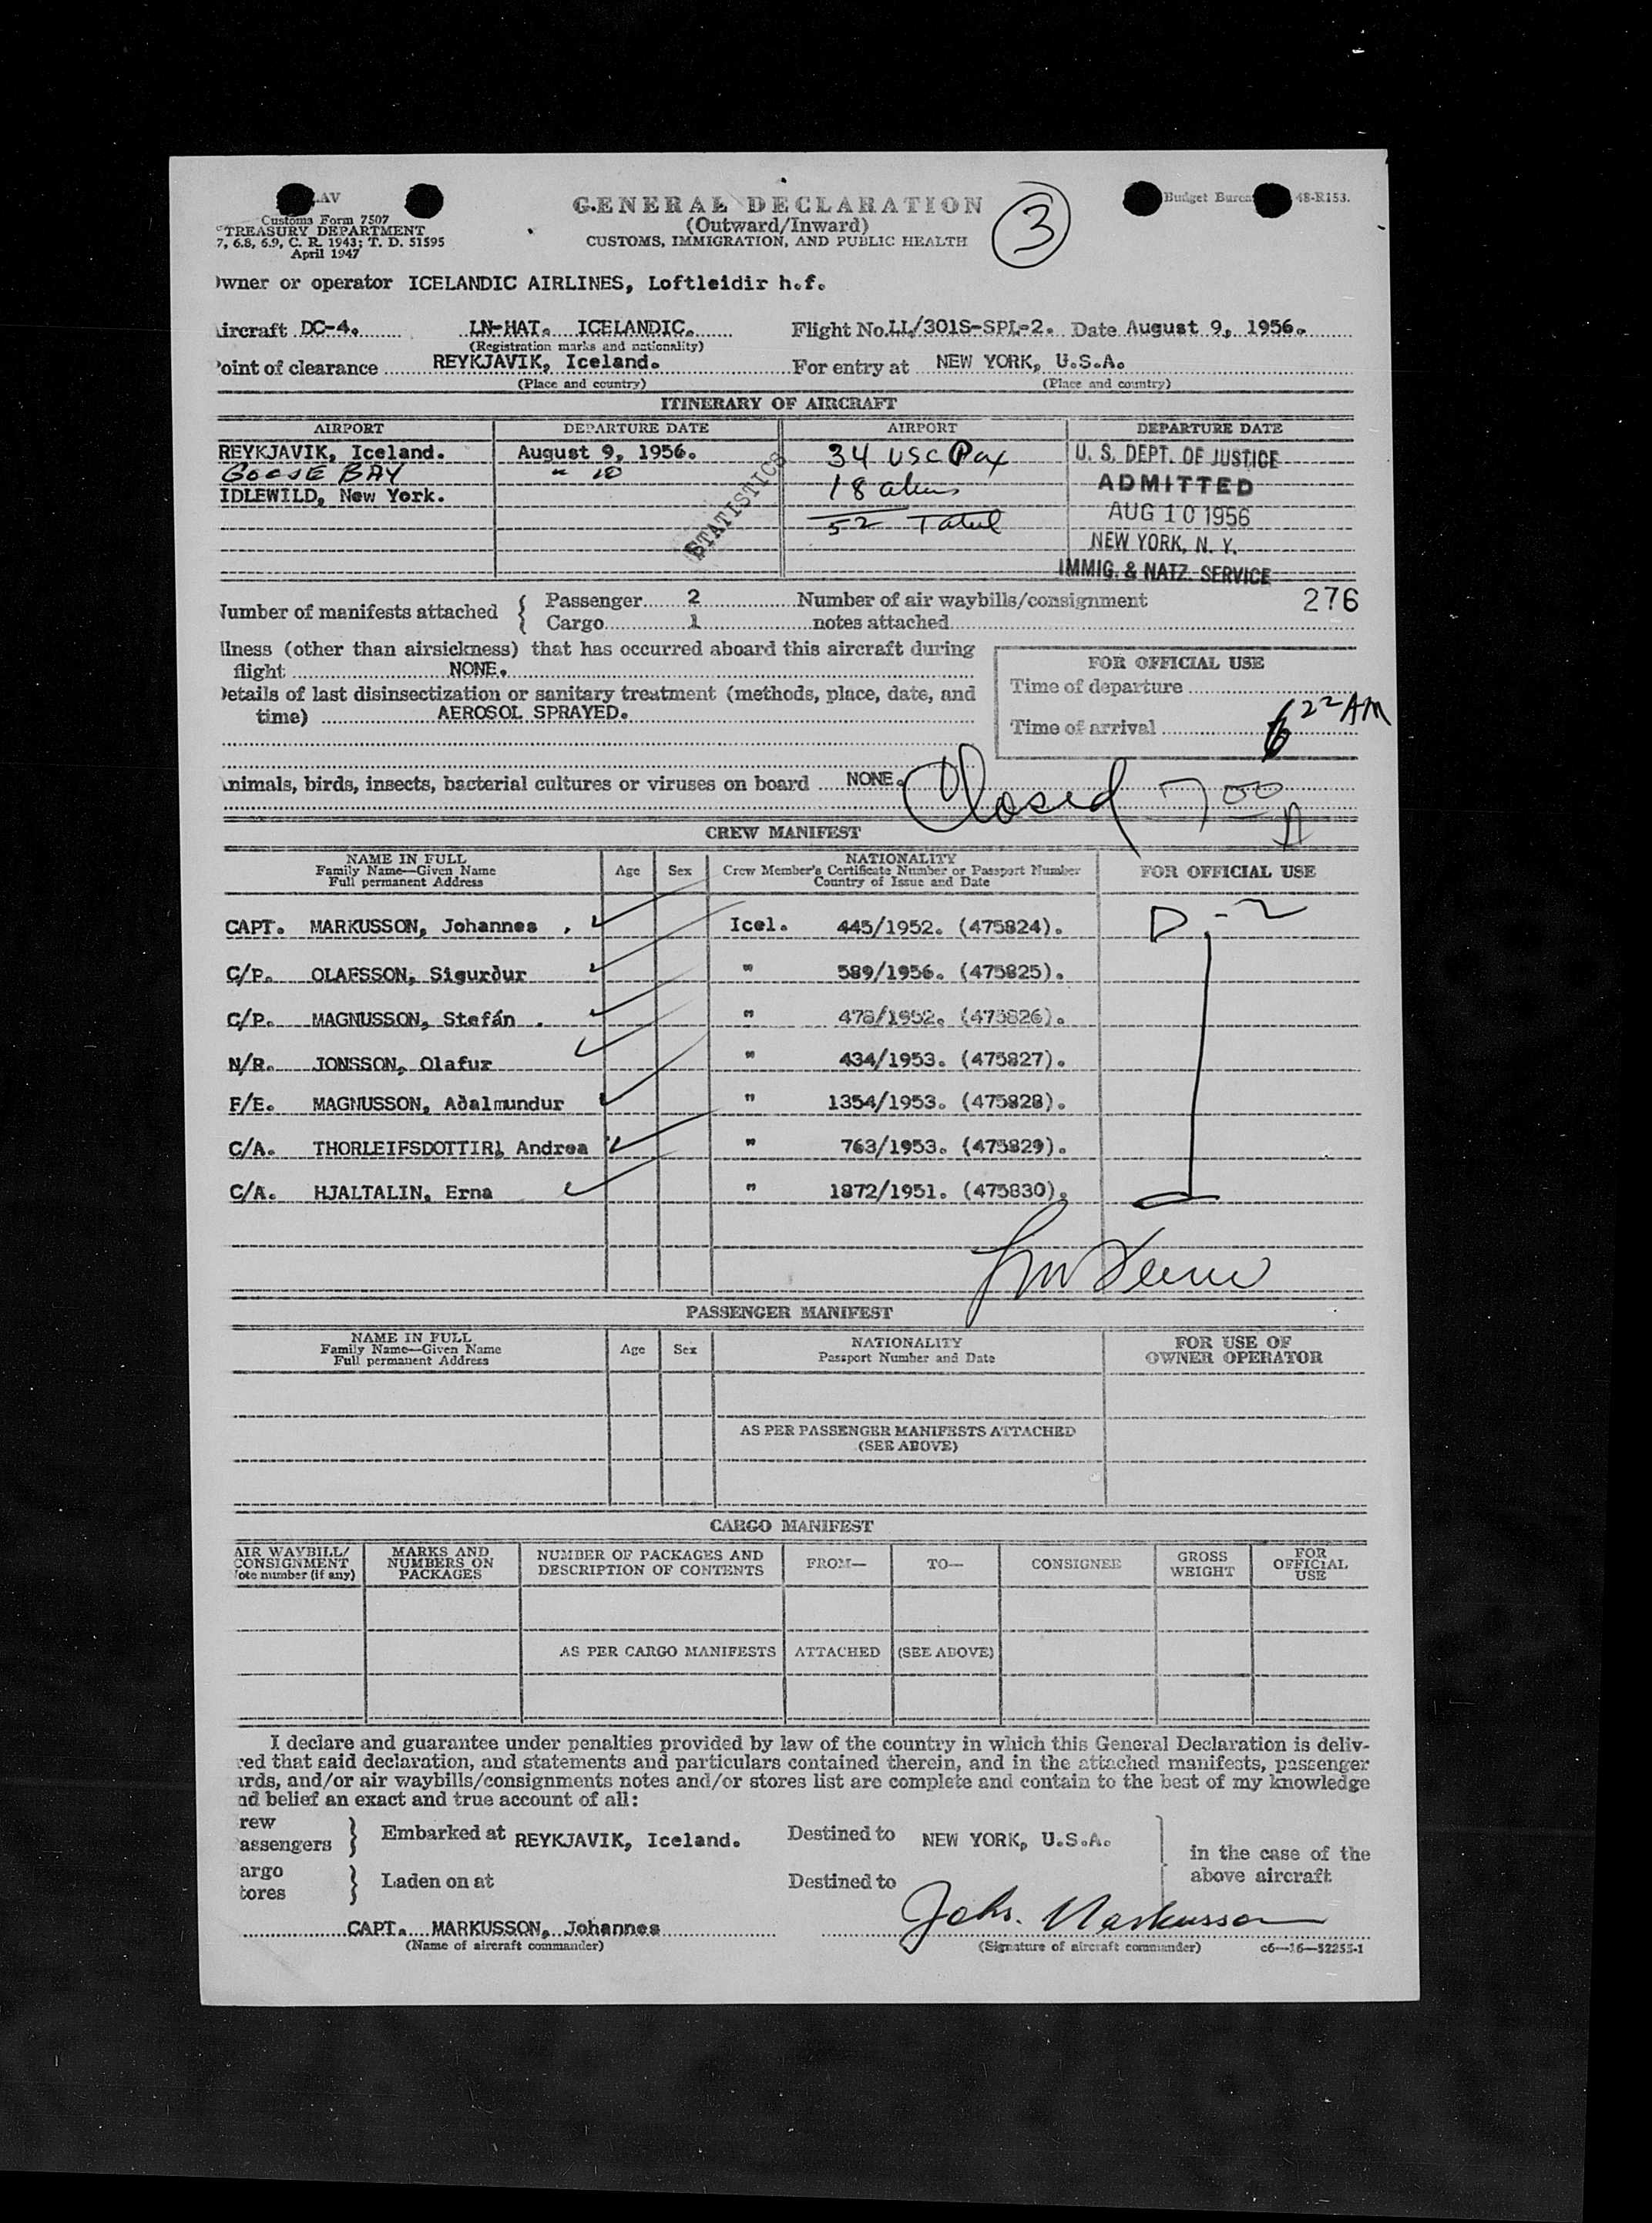 AV
Customs Form 7507
TREASURY DEPARTMENT
7, 6.8, 6.9, C. R. 1943; T. D. 51595
April 1947
GENERAL DECLARATION
(Outward/Inward)
CUSTOMS, IMMIGRATION, AND PUBLIC HEALTH
3
Budget Bureau 48-R153.
Owner or operator ICELANDIC AIRLINES, Loftleidir h.f.
Aircraft DC-4. LN-HAT. ICELANDIC. Flight No. LL/301S-SPL-2. Date August 9, 1956.
(Registration marks and nationality)
Point of clearance REYKJAVIK, Iceland. For entry at NEW YORK, U.S.A.
(Place and country) (Place and country)
ITINERARY OF AIRCRAFT
AIRPORT DEPARTURE DATE AIRPORT DEPARTURE DATE
REYKJAVIK, Iceland. August 9, 1956. 34 USC Pax U. S. DEPT. OF JUSTICE
GOOSE BAY " 10 18 aliens ADMITTED
IDLEWILD, New York. 52 Total AUG 10 1956
STATISTICS
NEW YORK, N. Y.
IMMIG. & NATZ. SERVICE
276
Number of manifests attached { Passenger 2 Number of air waybills/consignment
Cargo 1 notes attached
llness (other than airsickness) that has occurred aboard this aircraft during
flight NONE.
Details of last disinsectization or sanitary treatment (methods, place, date, and
time) AEROSOL SPRAYED.
FOR OFFICIAL USE
Time of departure
Time of arrival 6 22 AM
Animals, birds, insects, bacterial cultures or viruses on board NONE.
Closed 7 00 A
CREW MANIFEST
NAME IN FULL
Family Name—Given Name
Full permanent Address
Age Sex
NATIONALITY
Crew Member's Certificate Number or Passport Number
Country of Issue and Date
FOR OFFICIAL USE
CAPT. MARKUSSON, Johannes . Icel. 445/1952. (475824). D-2
C/P. OLAFSSON, Sigurður " 589/1956. (475825).
C/P. MAGNUSSON, Stefán . " 478/1952. (475826).
N/R. JONSSON, Olafur " 434/1953. (475827).
F/E. MAGNUSSON, Aðalmundur " 1354/1953. (475828).
C/A. THORLEIFSDOTTIR, Andrea " 763/1953. (475829).
C/A. HJALTALIN, Erna " 1872/1951. (475830).
PASSENGER MANIFEST
NAME IN FULL
Family Name—Given Name
Full permanent Address
Age Sex
NATIONALITY
Passport Number and Date
FOR USE OF
OWNER OPERATOR
AS PER PASSENGER MANIFESTS ATTACHED
(SEE ABOVE)
CARGO MANIFEST
AIR WAYBILL/
CONSIGNMENT
Note number (if any)
MARKS AND
NUMBERS ON
PACKAGES
NUMBER OF PACKAGES AND
DESCRIPTION OF CONTENTS
FROM— TO— CONSIGNEE
GROSS
WEIGHT
FOR
OFFICIAL
USE
AS PER CARGO MANIFESTS ATTACHED (SEE ABOVE)
I declare and guarantee under penalties provided by law of the country in which this General Declaration is deliv-
red that said declaration, and statements and particulars contained therein, and in the attached manifests, passenger
ards, and/or air waybills/consignments notes and/or stores list are complete and contain to the best of my knowledge
nd belief an exact and true account of all:
rew
assengers } Embarked at REYKJAVIK, Iceland. Destined to NEW YORK, U.S.A.
in the case of the
above aircraft
argo
tores } Laden on at Destined to
CAPT. MARKUSSON, Johannes Johs. Markusson
(Name of aircraft commander) (Signature of aircraft commander) c6—16—52255-1